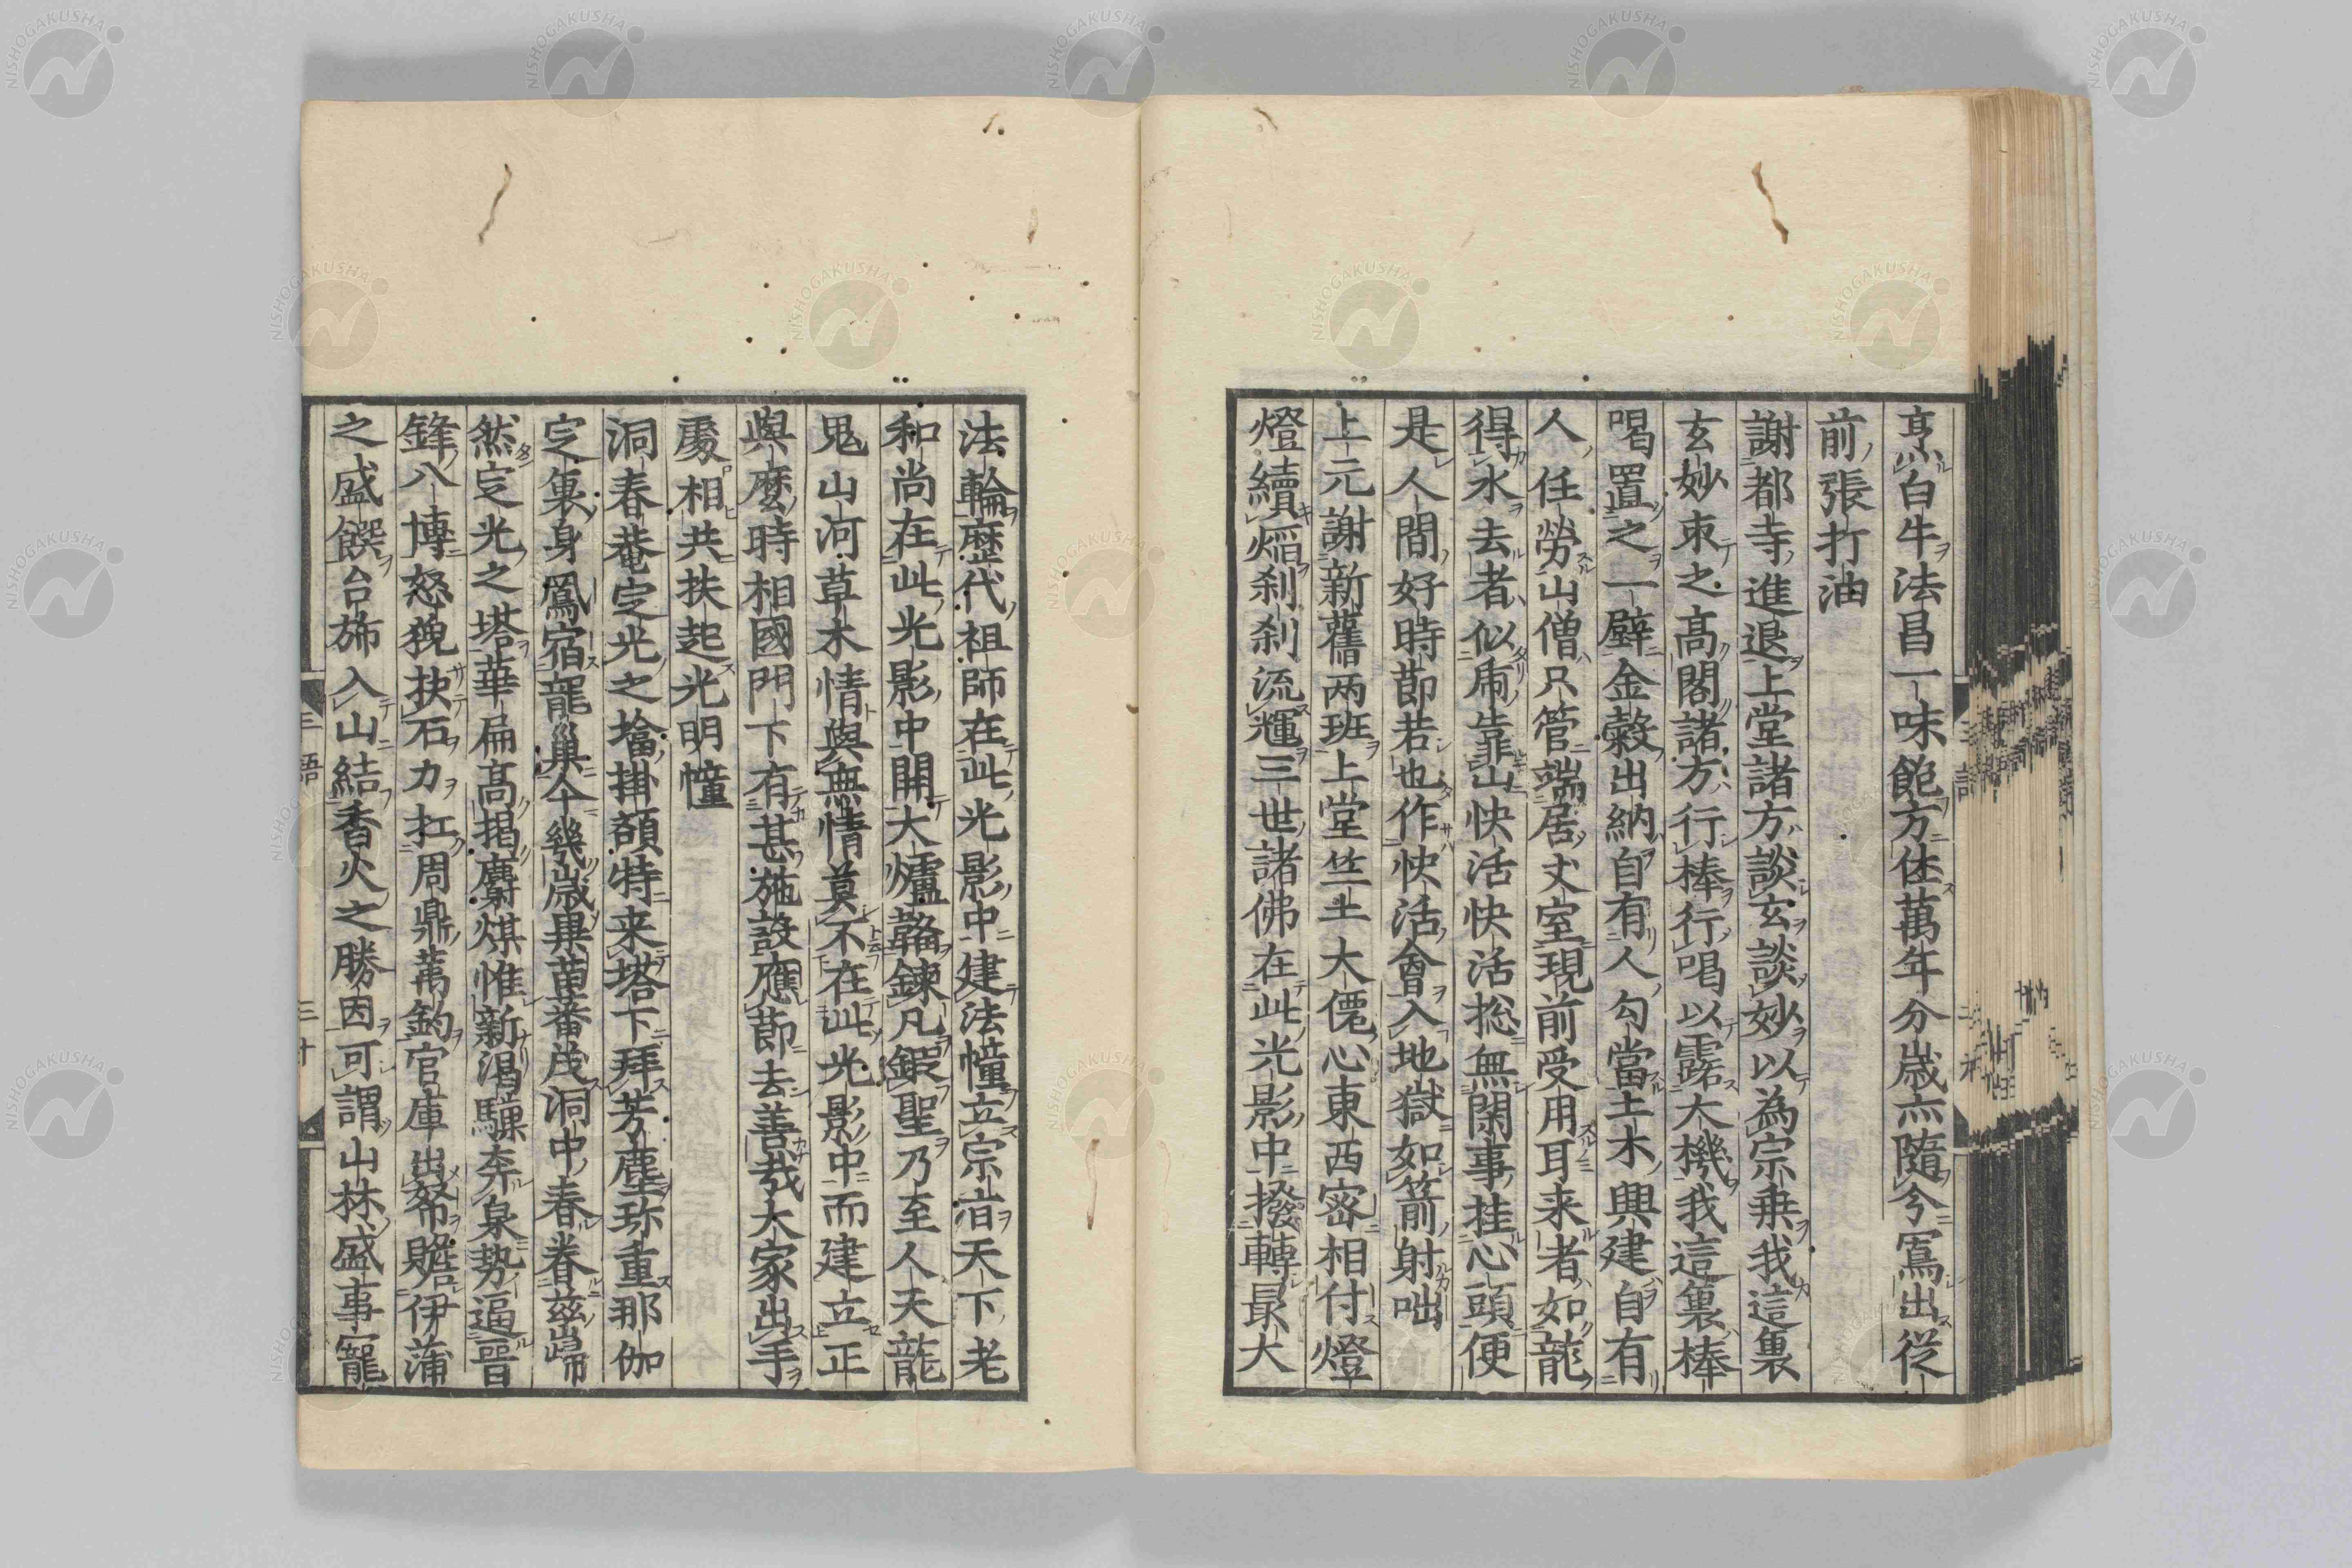 烹白牛法昌一味飽方住萬年分歳亦隨今寫出從
前張打油
謝都寺進退上堂諸方談玄談妙以為宗乗我這裏
玄妙束之髙閣諸方行棒行喝以露大機我這裏棒
喝置之一壁金糓出納自有人勾當土木興建自有
人任勞山僧只管端居丈室現前受用耳来者如龍
得水去者似乕靠山快活快活捴無閑事挂心頭便
是人間好時節若也作快活會入地獄如箭射咄
上元謝新舊両班上堂竺土大僊心東西密相付燈
燈續焰刹刹流輝三世諸佛在此光影中撥轉最大
法輪歴代祖師在此光影中建法幢立宗㫖天下老
和尚在此光影中開大爐鞴鍊凡鍜聖乃至人天龍
鬼山河草木情與無情莫不在此光影中而建立正
與麽時相國門下有甚施設應節去善哉大家出手
處相共扶起光明幢
洞春菴定光之塔掛額特来塔下拜芳塵珎重那伽
定裏身鳳宿龍巢今幾歳異苗蕃茂洞中春眷茲巋
然定光之塔華扁髙揭麝煤惟新渇驥奔泉勢逼晉
鋒八博怒猊抉石力扛周鼎萬鈞官庫出帑贍伊蒲
之盛饌台斾入山結香火之勝因可謂山林盛事寵
三 語
三十